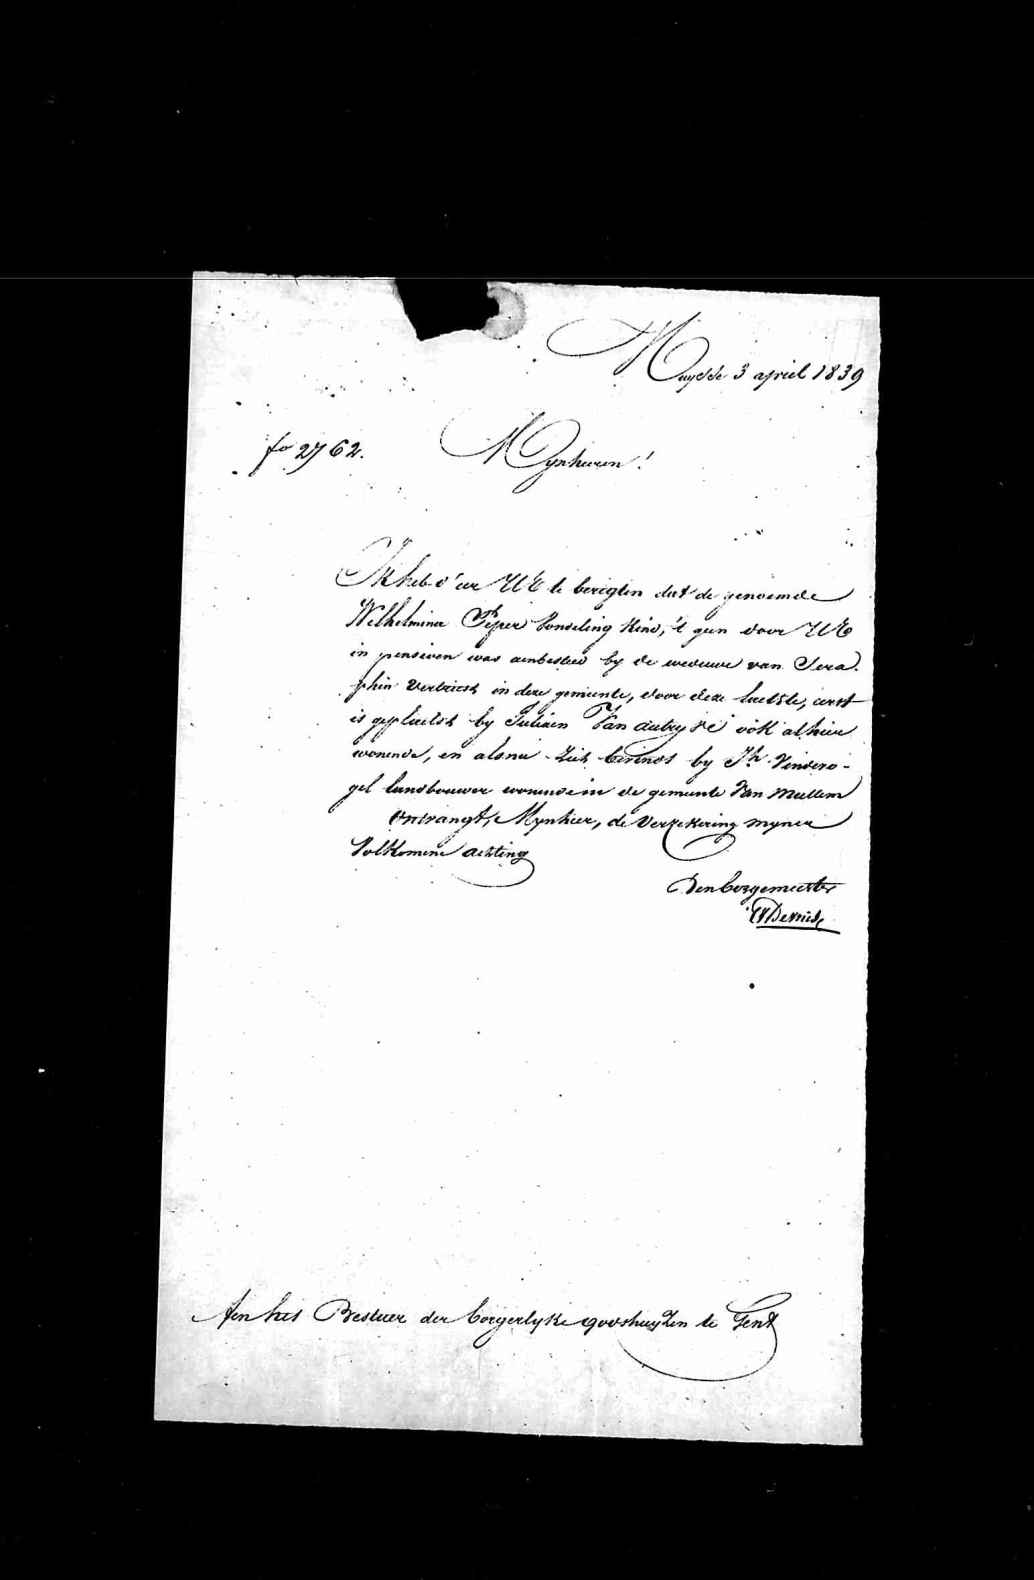 Huysse 3 april 1839
fo 2762.
Mynheeren!
Ik heb d'eer UE te berigten dat de genoemde
Wilhelmina Peper Vondeling kind, 't gen door UE
in pensioen was aenbesteed by de weduwe van Sera-
phin Verbriest in deze gemeente, door deze laetste, eerst
is geplaetst by Julien Van autryve ook alhier
wonende, en alsnu zich bevindt by Jh Vindevo-
gel landbouwer wonende in de gemeente Van Mullem
Ontvangt, Mynheer, de Verzekering myner
Volkomene achting
Den borgemeester
Aen het Bestuer der borgerlyke godshuyzen te Gent